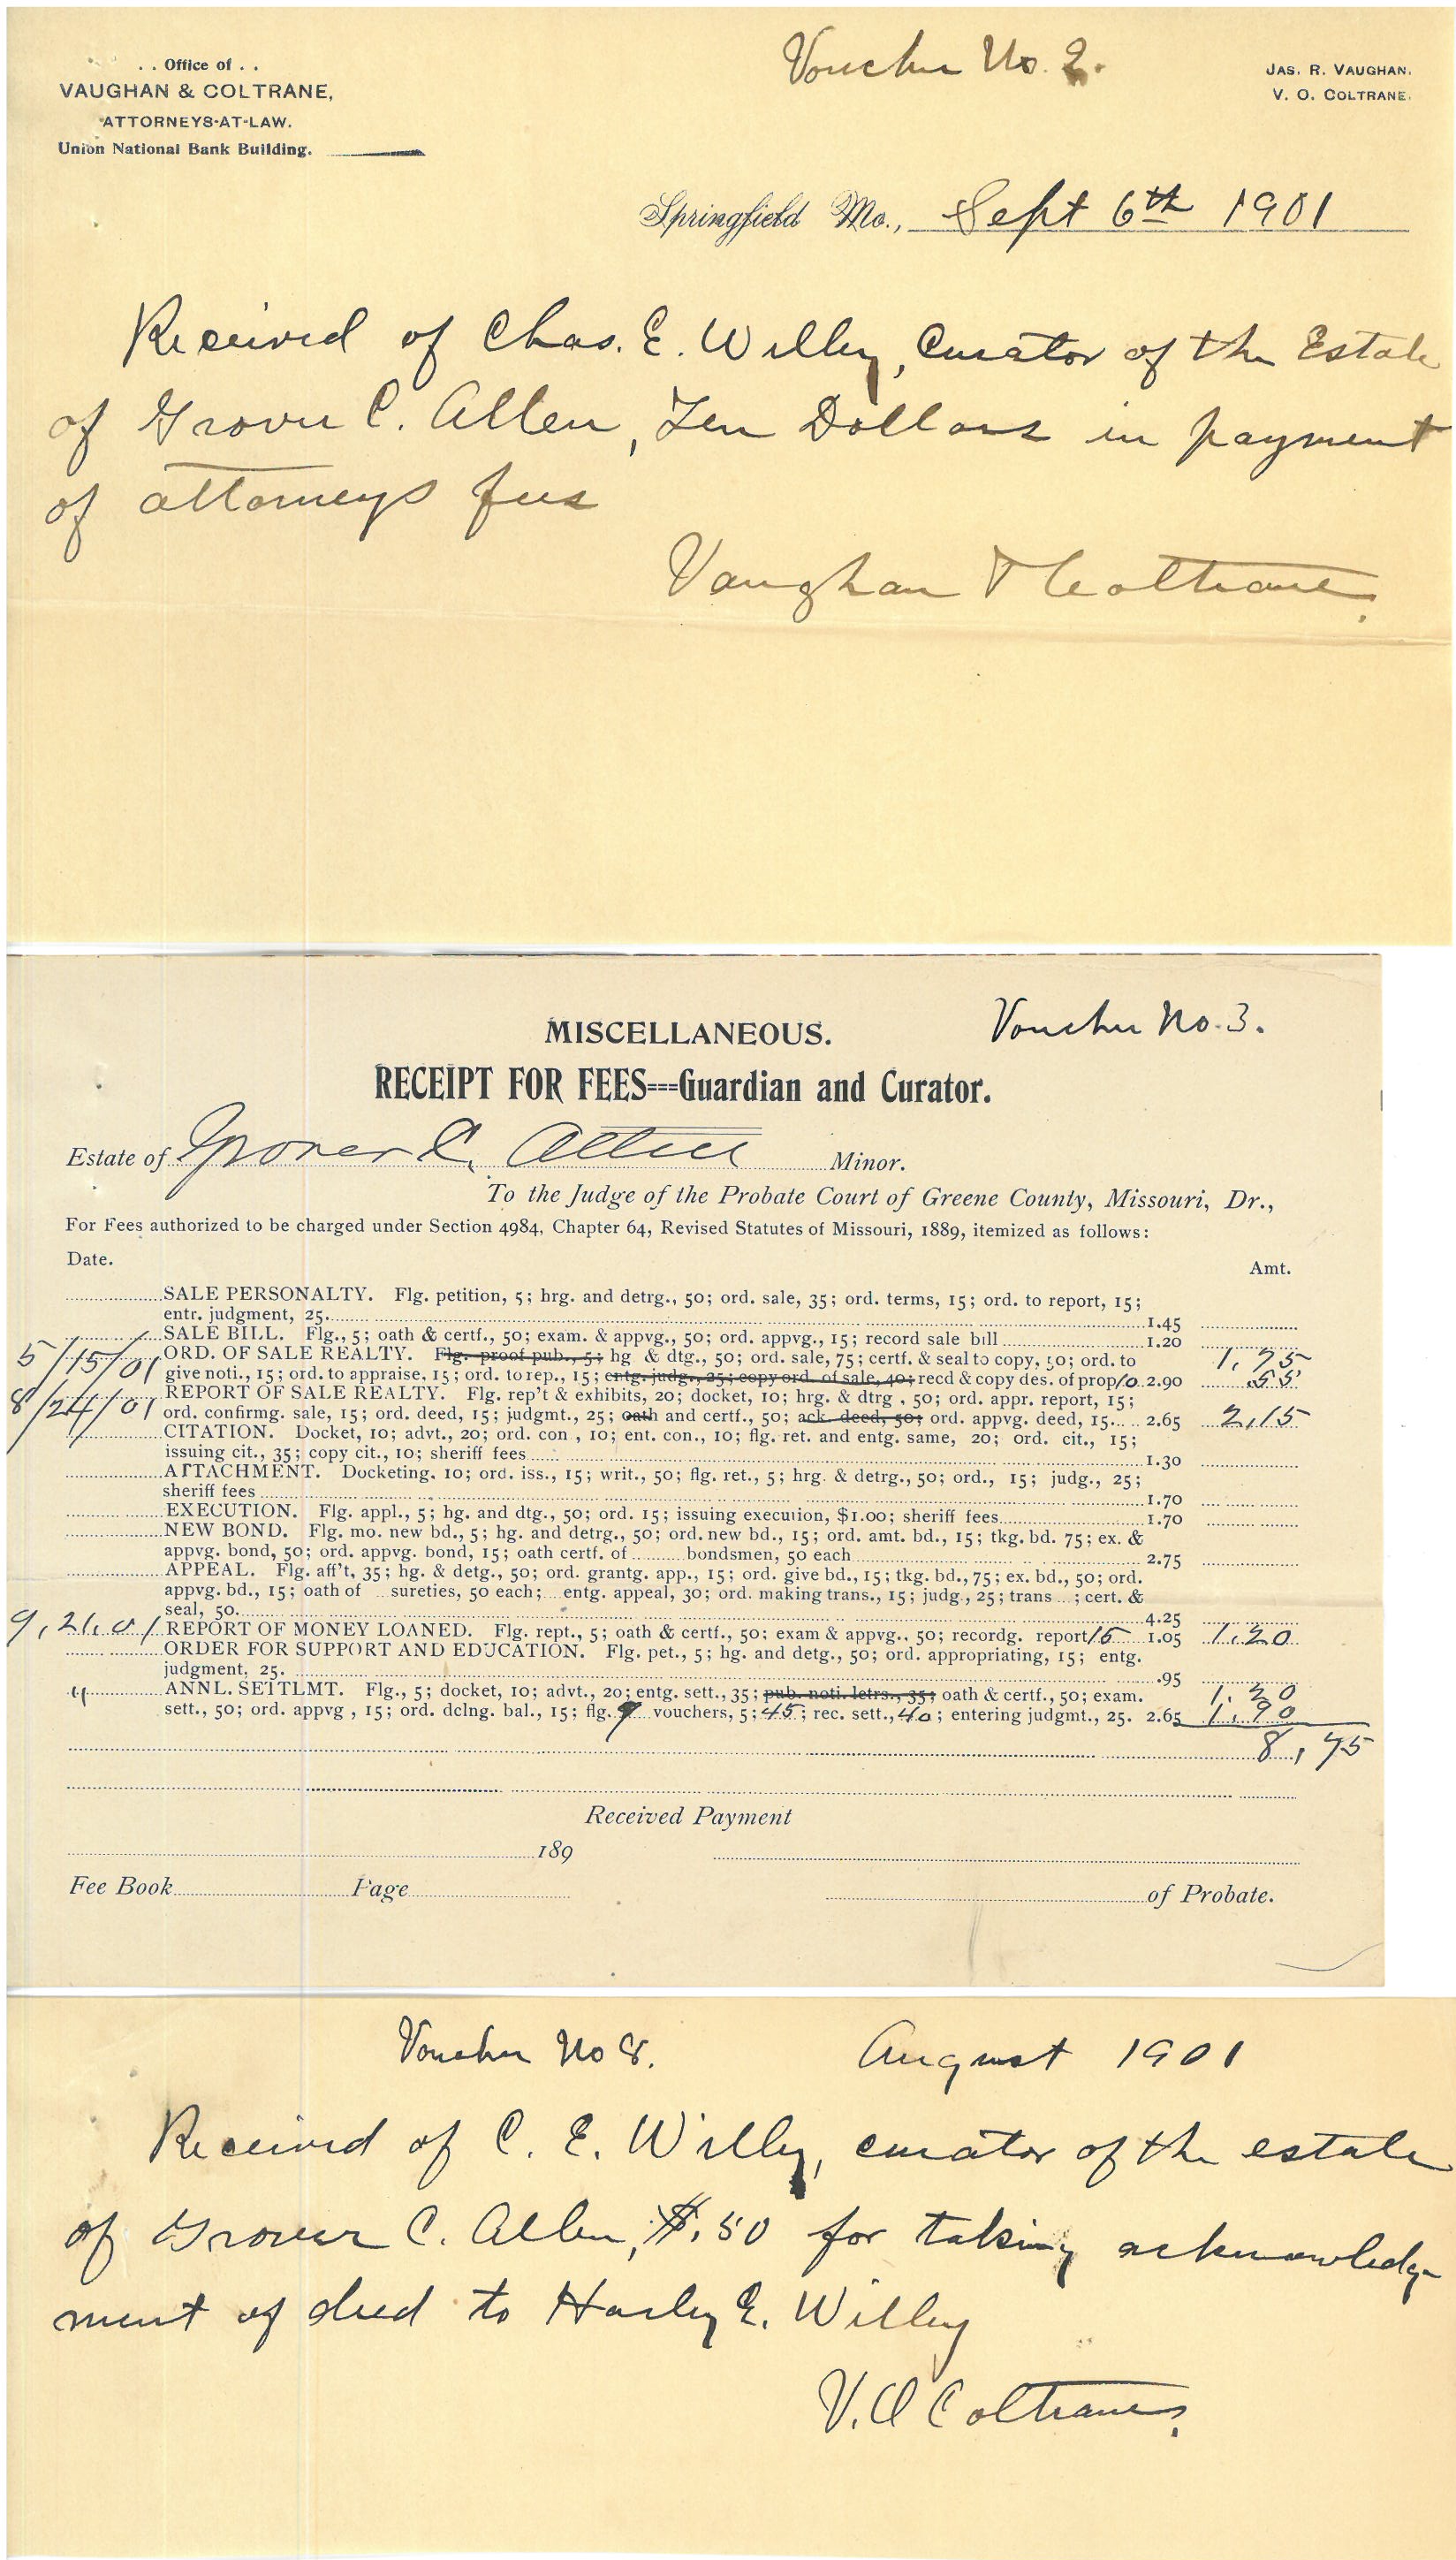 . . Office of . .
VAUGHAN & COLTRANE,
ATTORNEYS-AT-LAW.
Union National Bank Building.
Voucher No. 2.
JAS. R. VAUGHAN.
V. O. COLTRANE.
Springfield Mo., Sept 6th 1901
Received of Chas. E. Willey, Curator of the Estate
of Grover C. Allen, Ten Dollars in payment
of attorneys fees
Vaughan & Coltrane.
Voucher No. 3.
MISCELLANEOUS.
RECEIPT FOR FEES===Guardian and Curator.
Estate of Grover C. Allen Minor.
To the Judge of the Probate Court of Greene County, Missouri, Dr.,
For Fees authorized to be charged under Section 4984, Chapter 64, Revised Statutes of Missouri, 1889, itemized as follows:
Date. Amt.
SALE PERSONALTY. Flg. petition, 5; hrg. and detrg., 50; ord. sale, 35; ord. terms, 15; ord. to report, 15;
entr. judgment, 25. 1.45
SALE BILL. Flg., 5; oath & certf., 50; exam. & appvg., 50; ord. appvg., 15; record sale bill 1.20
5/15/01 ORD. OF SALE REALTY. Flg. proof pub., 5; hg & dtg., 50; ord. sale, 75; certf. & seal to copy, 50; ord. to 1.75
give noti., 15; ord. to appraise, 15; ord. to rep., 15; entg. judg., 25; copy ord. of sale, 40; recd & copy des. of prop 10 2.90 .55
8/24/01 REPORT OF SALE REALTY. Flg. rep't & exhibits, 20; docket, 10; hrg. & dtrg , 50; ord. appr. report, 15;
ord. confirmg. sale, 15; ord. deed, 15; judgmt., 25; oath and certf., 50; ack. deed, 50; ord. appvg. deed, 15... 2.65 2,15
CITATION. Docket, 10; advt., 20; ord. con , 10; ent. con., 10; flg. ret. and entg. same, 20; ord. cit., 15;
issuing cit., 35; copy cit., 10; sheriff fees 1.30
ATTACHMENT. Docketing. 10; ord. iss., 15; writ., 50; flg. ret., 5; hrg. & detrg., 50; ord., 15; judg., 25;
sheriff fees 1.70
EXECUTION. Flg. appl., 5; hg. and dtg., 50; ord. 15; issuing execution, $1.00; sheriff fees 1.70
NEW BOND. Flg. mo. new bd., 5; hg. and detrg., 50; ord. new bd., 15; ord. amt. bd., 15; tkg. bd. 75; ex. &
appvg. bond, 50; ord. appvg. bond, 15; oath certf. of ........ bondsmen, 50 each 2.75
APPEAL. Flg. aff't, 35; hg. & detg., 50; ord. grantg. app., 15; ord. give bd., 15; tkg. bd., 75; ex. bd., 50; ord.
appvg. bd., 15; oath of ... sureties, 50 each; entg. appeal, 30; ord. making trans., 15; judg., 25; trans ...; cert. &
seal, 50. 4.25
9,21,01 REPORT OF MONEY LOANED. Flg. rept., 5; oath & certf., 50; exam & appvg., 50; recordg. report 15 1.05 1.20
ORDER FOR SUPPORT AND EDUCATION. Flg. pet., 5; hg. and detg., 50; ord. appropriating, 15; entg.
judgment, 25. .95
" ANNL. SETTLMT. Flg., 5; docket, 10; advt., 20; entg. sett., 35; pub. noti. letrs., 35; oath & certf., 50; exam. 1.20
sett., 50; ord. appvg , 15; ord. dclng. bal., 15; flg. 9 vouchers, 5; 45; rec. sett., 40; entering judgmt., 25. 2.65 1.90
8,75
Received Payment
189
Fee Book Page of Probate.
Voucher No 8. August 1901
Received of C. E. Willey, curator of the estate
of Grover C. Allen, $.50 for taking acknowledge
ment of deed to Harley E. Willey
V. O Coltrane.